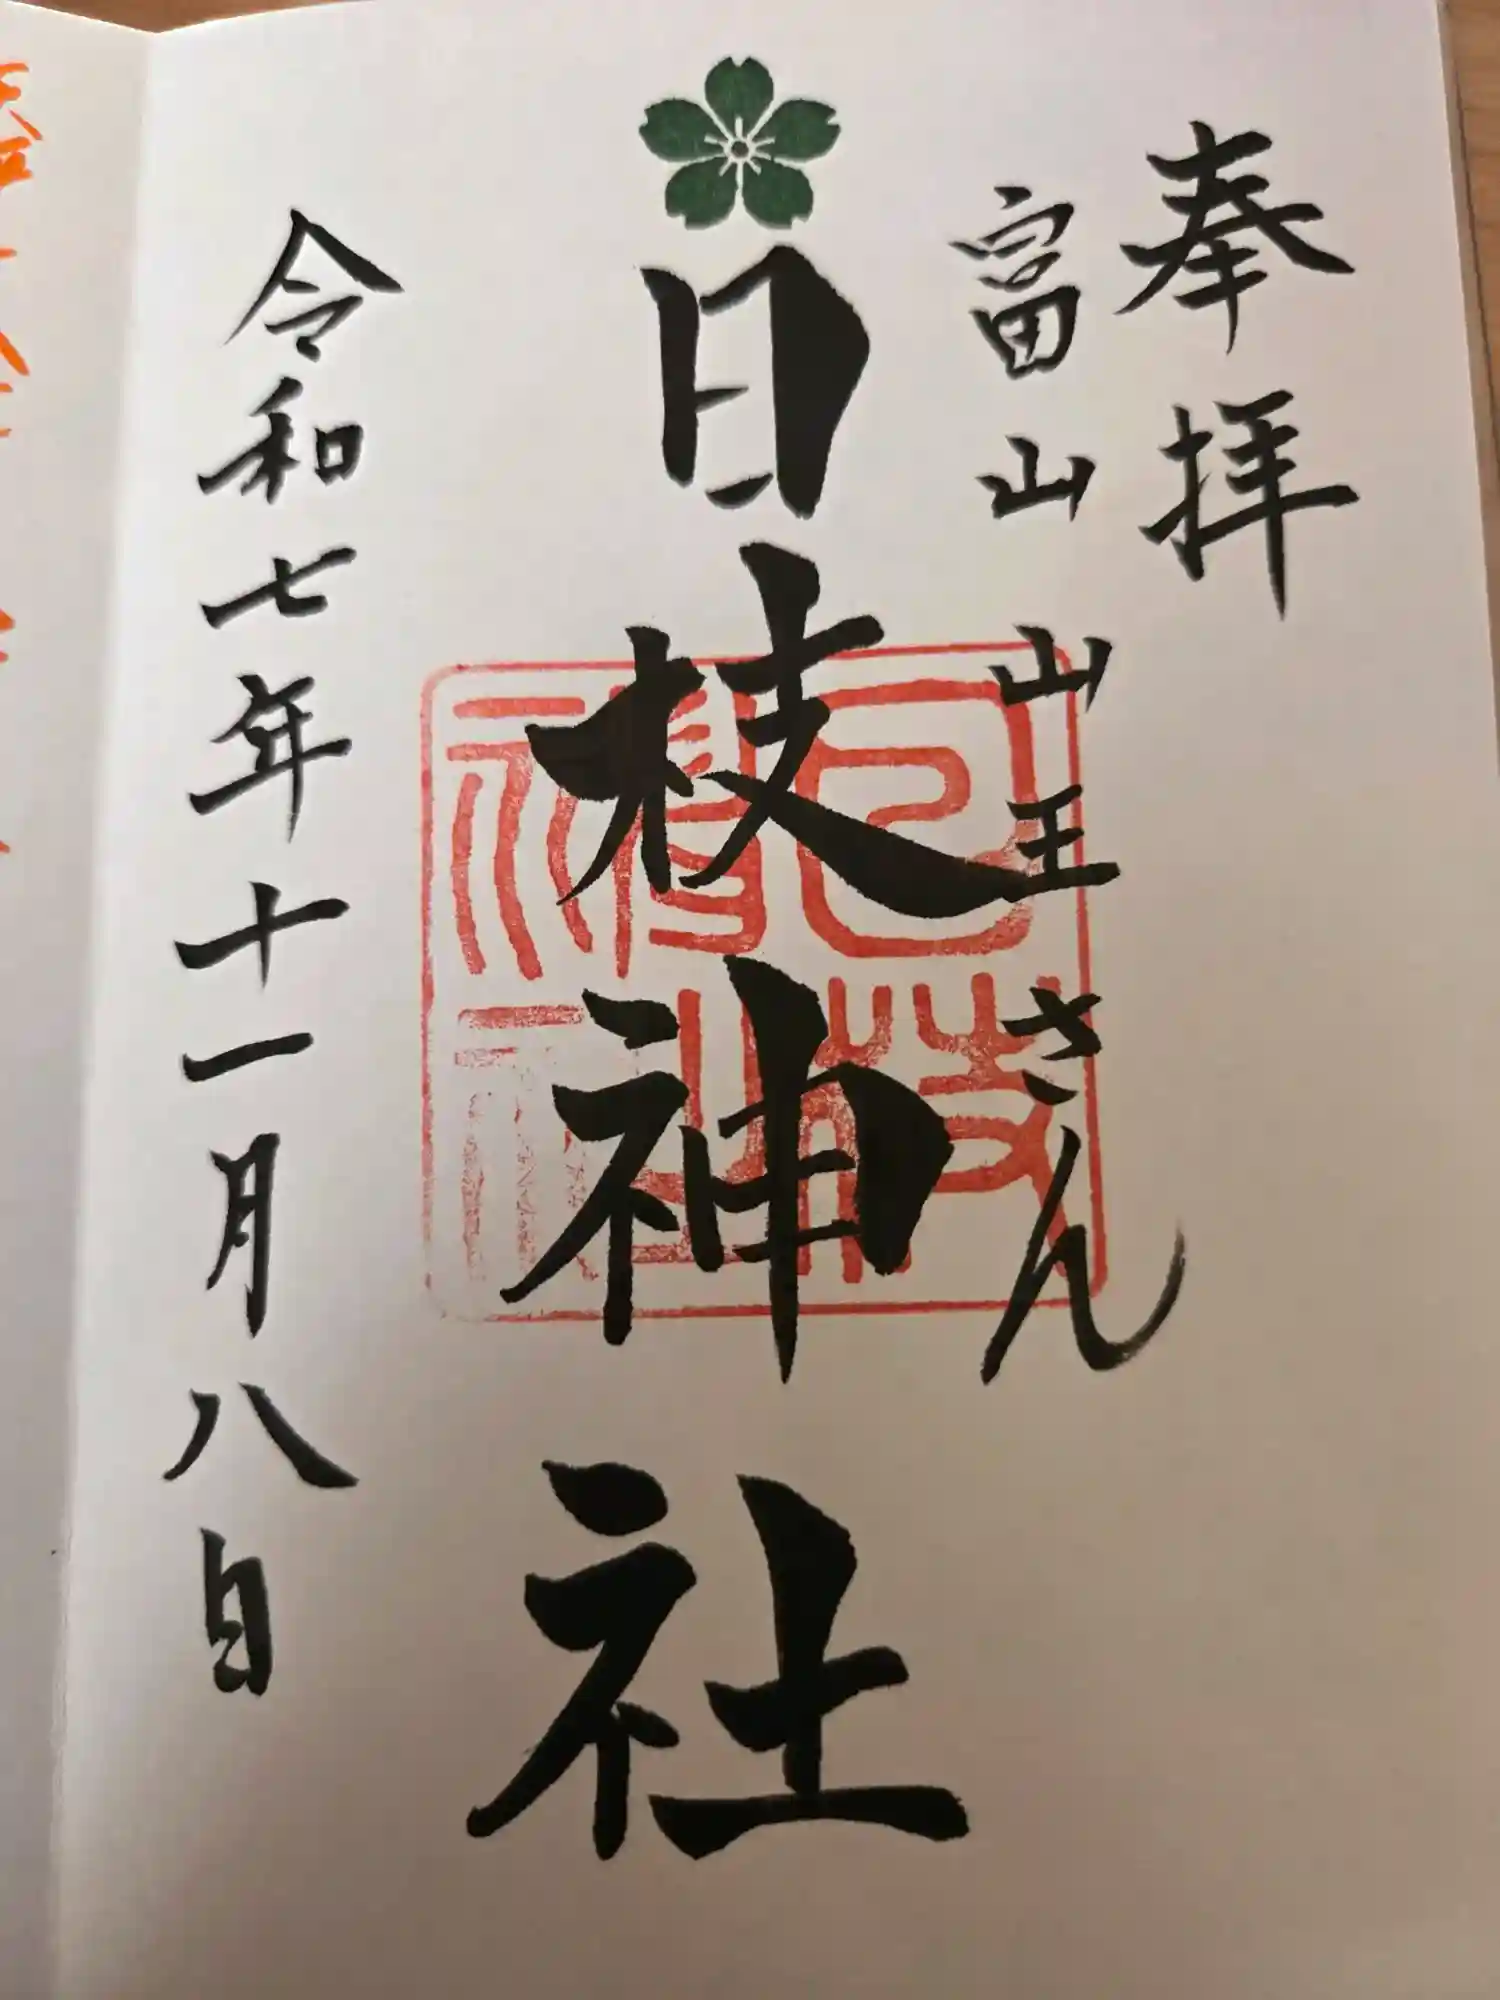 奉拝
富山 山王さん
日枝神社
日枝神社
令和七年十一月八日